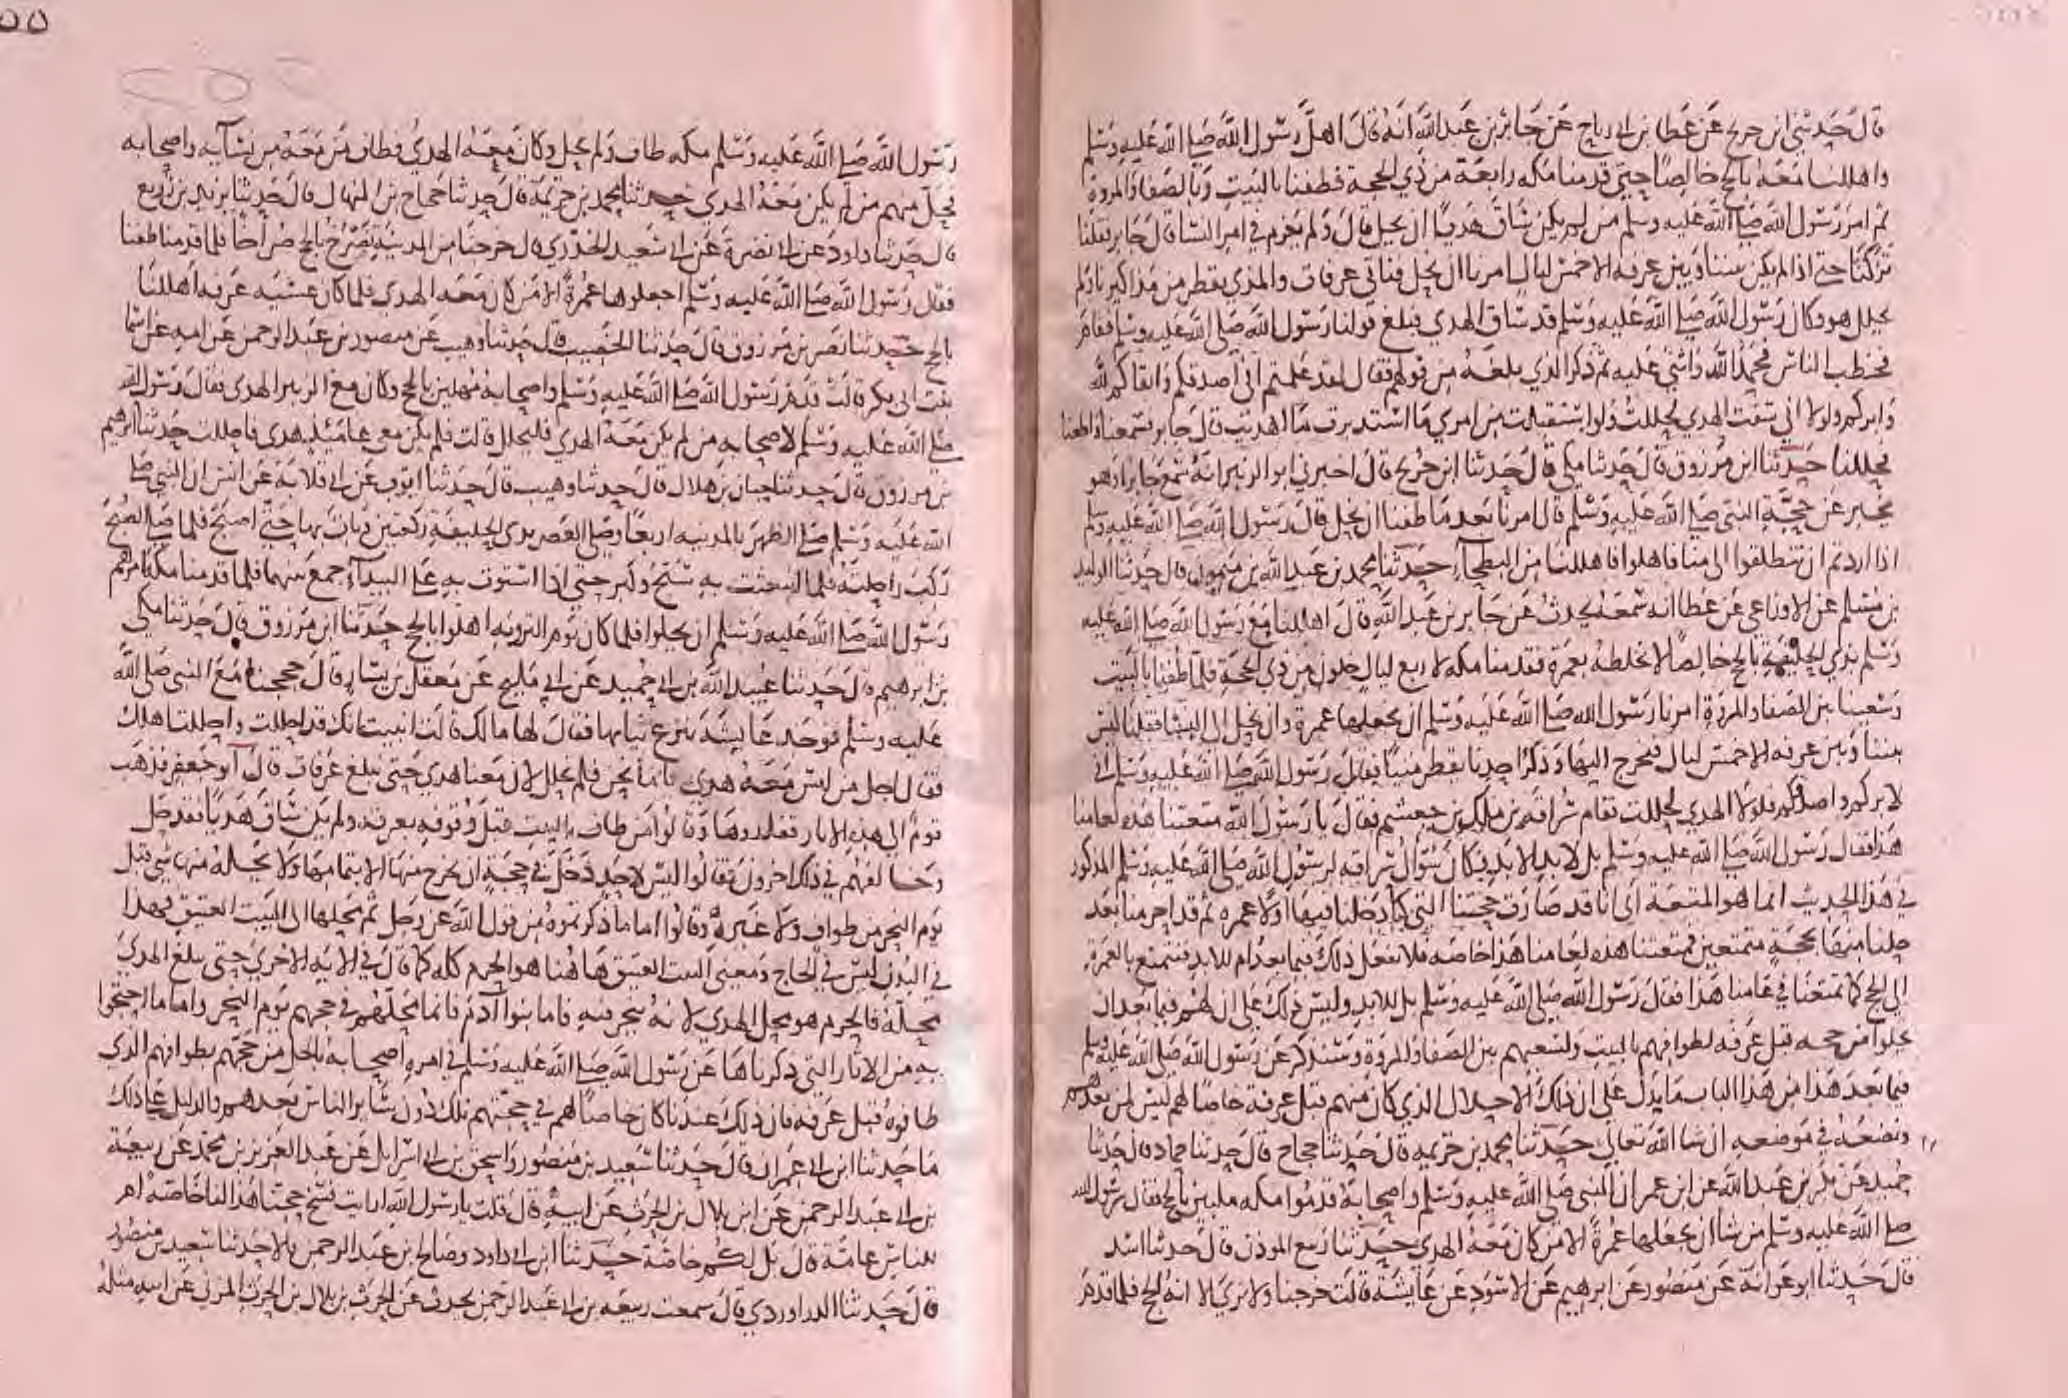 قال حدثني ابن جريج عن عطا بن ابي رباح عن جابر بن عبد الله انه قال اهل رسول الله صلى الله عليه وسلم
واهللنا معه بالحج خالصا حتى قدمنا مكه رابعة من ذي الحجة فطفنا بالبيت وبالصفا والمروة
ثم امر رسول الله صلى الله عليه وسلم من لم يكن ساق هديا ان يحل قال ولم يعزم في امر النسا قال جابر فقلنا
تركنا حتى اذا لم يكن بيننا وبين عرفه الا خمس ليال امرنا ان نحل فناتي عرفات والمذي يقطر من مذاكيرنا ولم
يحلل هو وكان رسول الله صلى الله عليه وسلم قد ساق الهدي فبلغ قولنا رسول الله صلى الله عليه وسلم فقام
فخطب الناس فحمد الله واثنى عليه ثم ذكر الذي بلغه من قولهم فقال لقد علمتم اني اصدقكم واتقاكم لله
وابركم ولولا اني سقت الهدي لحللت ولو استقبلت من امري ما استدبرت ما اهديت قال جابر فسمعنا واطعنا
فحللنا حدثنا ابن مرزوق قال حدثنا مكي قال حدثنا ابن جريج قال اخبرني ابو الزبير انه سمع جابرا وهو
يخبر عن حجة النبي صلى الله عليه وسلم قال امرنا بعد ما طفنا ان نحل قال رسول الله صلى الله عليه وسلم
اذا اردتم ان تنطلقوا الى منا فاهلوا فاهللنا من البطحآ حدثنا محمد بن عبد الله بن ميمون قال حدثنا الوليد
بن مسلم عن الاوزاعي عن عطا انه سمعه يحدث عن جابر بن عبد الله قال اهللنا مع رسول الله صلى الله عليه
وسلم بذي الحليفة بالحج خالصا لا نخلطه بعمرة فقدمنا مكه لاربع ليال خلون من ذي الحجة فلما طفنا بالبيت
وسعينا بين الصفا والمروة امرنا رسول الله صلى الله عليه وسلم ان نجعلها عمرة وان نحل الى النسا فقلنا ليس
بيننا وبين عرفه الا خمس ليال فنخرج اليها وذكر احدنا يقطر منيا فقال رسول الله صلى الله عليه وسلم اني
لابركم واصدقكم فلولا الهدي لحللت فقام سراقه بن ملك بن جعشم فقال يا رسول الله متعتنا هذه لعامنا
هذا فقال رسول الله صلى الله عليه وسلم بل لابد الابد فكان سؤال سراقه لرسول الله صلى الله عليه وسلم المذكور
في هذا الحديث انما هو المتعة اى انا قد صارت حجتنا التي كنا دخلنا فيها اولا عمره ثم قد احرمنا بعد
حلنا منها بحجة متمتعين فمتعتنا هذه لعامنا هذا خاصه فلا نفعل ذلك فيما بعد ام للابد فنتمتع بالعمرة
الى الحج كما تمتعنا في عامنا هذا فقال رسول الله صلى الله عليه وسلم بل للابد وليس ذلك على ان لهم فيما بعد ان
يحلوا من حجه قبل عرفه لطوافهم بالبيت ولسعيهم بين الصفا والمروة وسنذكر عن رسول الله صلى الله عليه وسلم
فيما بعد هذا من هذا الباب ما يدل على ان ذلك الاحلال الذي كان منهم قبل عرفة خاصا لهم ليس لمن بعدهم
ونضعه في موضعه ان شا الله تعالى حدثنا محمد بن خزيمه قال حدثنا حجاج قال حدثنا حماد قال حدثنا
حميد عن بكر بن عبد الله عن ابن عمر ان النبي صلى الله عليه وسلم واصحابه قدموا مكه ملبين بالحج فقال رسول الله
صلى الله عليه وسلم من شا ان يجعلها عمرة الا من كان معه الهدي حدثنا ربيع الموذن قال حدثنا اسد
قال حدثنا ابو عوانة عن منصور عن ابرهيم عن الاسود عن عايشة قالت خرجنا ولا نرى الا انه الحج فلما قدم
رسول الله صلى الله عليه وسلم مكه طاف ولم يحل وكان معه الهدي فطاف من معه من نسآيه واصحابه
فحل منهم من لم يكن معه الهدي حدثنا محمد بن خزيمة قال حدثنا حجاج بن المنهال قال حدثنا يزيد بن زريع
قال حدثنا داود عن ابي نضرة عن ابي سعيد الخدري قال خرجنا من المدينة نصرخ بالحج صراخا فلما قدمنا طفنا
فقال رسول الله صلى الله عليه وسلم اجعلوها عمرة الا من كان معه الهدي فلما كان عشيه عرفه اهللنا
بالحج حدثنا نصر بن مرزوق قال حدثنا الخصيب قال حدثنا وهيب عن منصور بن عبد الرحمن عن امه عن اسما
بنت ابي بكر قالت قدم رسول الله صلى الله عليه وسلم واصحابه مهلين بالحج وكان مع الزبير الهدي فقال رسول الله
صلى الله عليه وسلم لاصحابه من لم يكن معه الهدي فليحلل قالت فلم يكن معي عامئيذ هدي فاحللت حدثنا ابرهيم
بن مرزوق قال حدثنا حبان بن هلال قال حدثنا وهيب قال حدثنا ايوب عن ابي قلابة عن انس ان النبي صلى
الله عليه وسلم صلى الظهر بالمدينه اربعا وصلى العصر بذى الحليفة ركعتين وبات بها حتى اصبح فلما صلى الصبح
ركب راحلته فلما انبعثت به سبح وكبر حتى اذا استوت به على البيدآ جمع بينهما فلما قدمنا مكه امرهم
رسول الله صلى الله عليه وسلم ان يحلوا فلما كان يوم الترويه اهلوا بالحج حدثنا ابن مرزوق قال حدثنا مكي
بن ابرهيم قال حدثنا عبيد الله بن ابي حميد عن ابي مليح عن معقل بن يسار قال حججنا مع النبي صلى الله
عليه وسلم فوجد عايشة تنزع ثيابها فقال لها مالك قالت انبيت انك قد احللت واحللت اهلك
فقال احل من ليس معه هدي فاما نحن فلم نحلل لان معنا هدي حتى نبلغ عرفات قال ابو جعفر فذهب
قوم الى هذه الاثار فقلدوها وقالوا من طاف بالبيت قبل وقوفه بعرفه ولم يكن ساق هديا فقد حل
وخالفهم في ذلك اخرون فقالوا ليس لاحد دخل في حجة ان يخرج منها الا بتمامها ولا يحله منها شي قبل
يوم النحر من طواف ولا غيره وقالوا اما ما ذكرتموه من قول الله عز وجل ثم محلها الى البيت العتيق فهذا
في البدن ليس في الحاج ومعنى البيت العتيق هاهنا هو الحرم كله كما قال في الايه الاخرى حتى يبلغ الهدى
محله فالحرم هو محل الهدي لانه ينحر فيه فاما بنوا آدم فانما محلهم في حجهم يوم النحر واما ما احتجوا
به من الاثار التي ذكرناها عن رسول الله صلى الله عليه وسلم في امره اصحابه بالحل من حجهم بطوافهم الذي
طافوه قبل عرفه فان ذلك عندنا كان خاصا لهم في حجتهم تلك دون ساير الناس بعدهم والدليل على ذلك
ما حدثنا ابن ابي عمران قال حدثنا سعيد بن منصور واسحق بن ابي اسرايل عن عبد العزيز بن محمد عن ربيعة
بن ابي عبد الرحمن عن ابن بلال بن الحرث عن ابيه قال قلت يا رسول الله ارايت فسخ حجتنا هذا لنا خاصة ام
للناس عامة قال بل لكم خاصة حدثنا ابن ابي داود وصالح بن عبد الرحمن قالا حدثنا سعيد بن منصور
قال حدثنا الدراوردي قال سمعت ربيعه بن ابي عبد الرحمن يحدث عن الحرث بن بلال بن الحرث المزني عن ابيه مثله